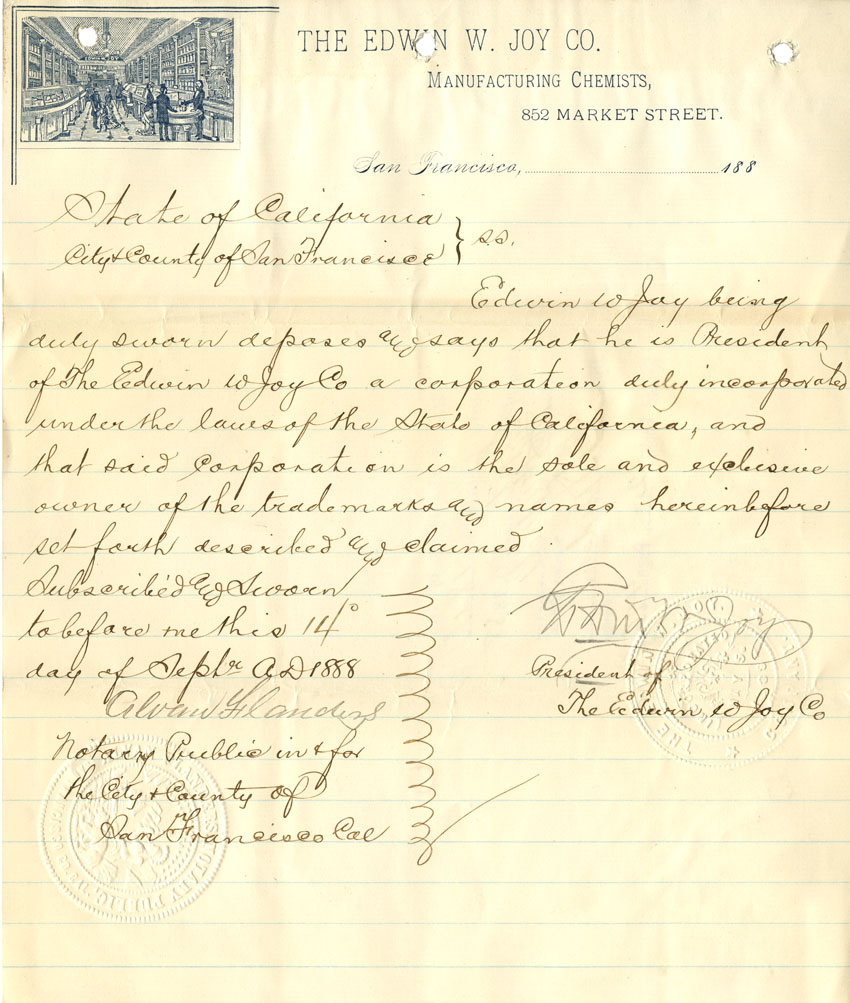 THE EDWIN W. JOY CO.
MANUFACTURING CHEMISTS,
852 MARKET STREET.
San Francisco, 188
State of California
City & County of San Francisco } s.s.
Edwin W Joy being
duly sworn deposes and says that he is President
of The Edwin W Joy Co a corporation duly incorporated
under the laws of the State of California, and
that said Corporation is the sole and exclusive
owner of the trademarks and names hereinbefore
set forth described and claimed.
Subscribed and Sworn
to before me this 14"
day of Septr A.D 1888
Alvan Flanders
Notary Public in & for
the City & County of
San Francisco Cal
Edwin W Joy
President of
The Edwin W Joy Co